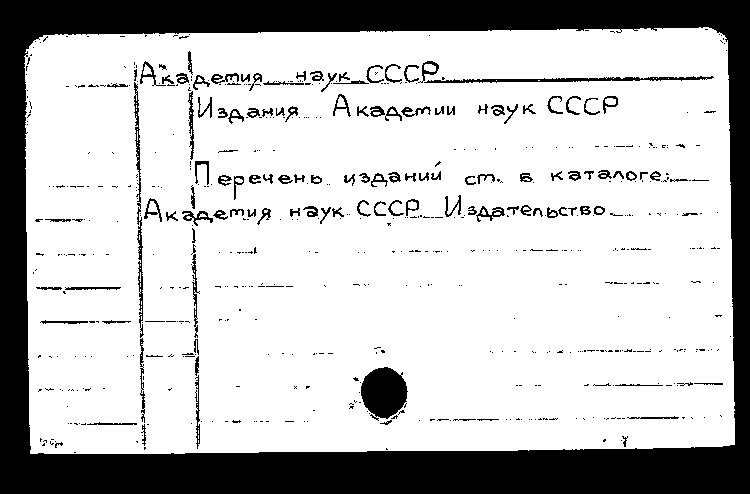 Академия наук СССР.
Издания Академии наук СССР
Перечень изданий см. в каталоге:
Академия наук СССР Издательство